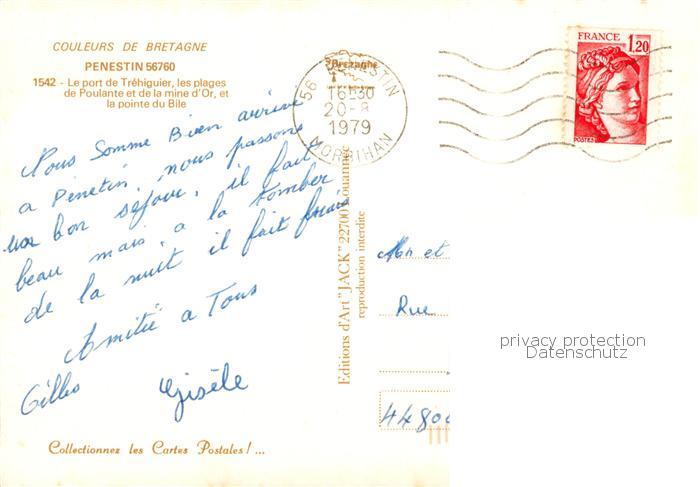 COULEURS DE BRETAGNE
PENESTIN 56760
1542 - Le port de Tréhiguier, les plages
de Poulante et de la mine d'Or, et
la pointe du Bile
Nous Somme Bien arrivé
a Pénetin, nous passons
un bon sejour, il fait
beau mais, a la tomber
de la nuit il fait frais
Amitié a Tous
Gilles Gisèle
Collectionnez les Cartes Postales !...
Editions d'Art "JACK" 22700 Louannec
reproduction interdite
Bretagne
56 PENESTIN
16H30
20-8
1979
MORBIHAN
FRANCE
1,20
POSTES
Mr et
Rue
privacy protection
Datenschutz
4480